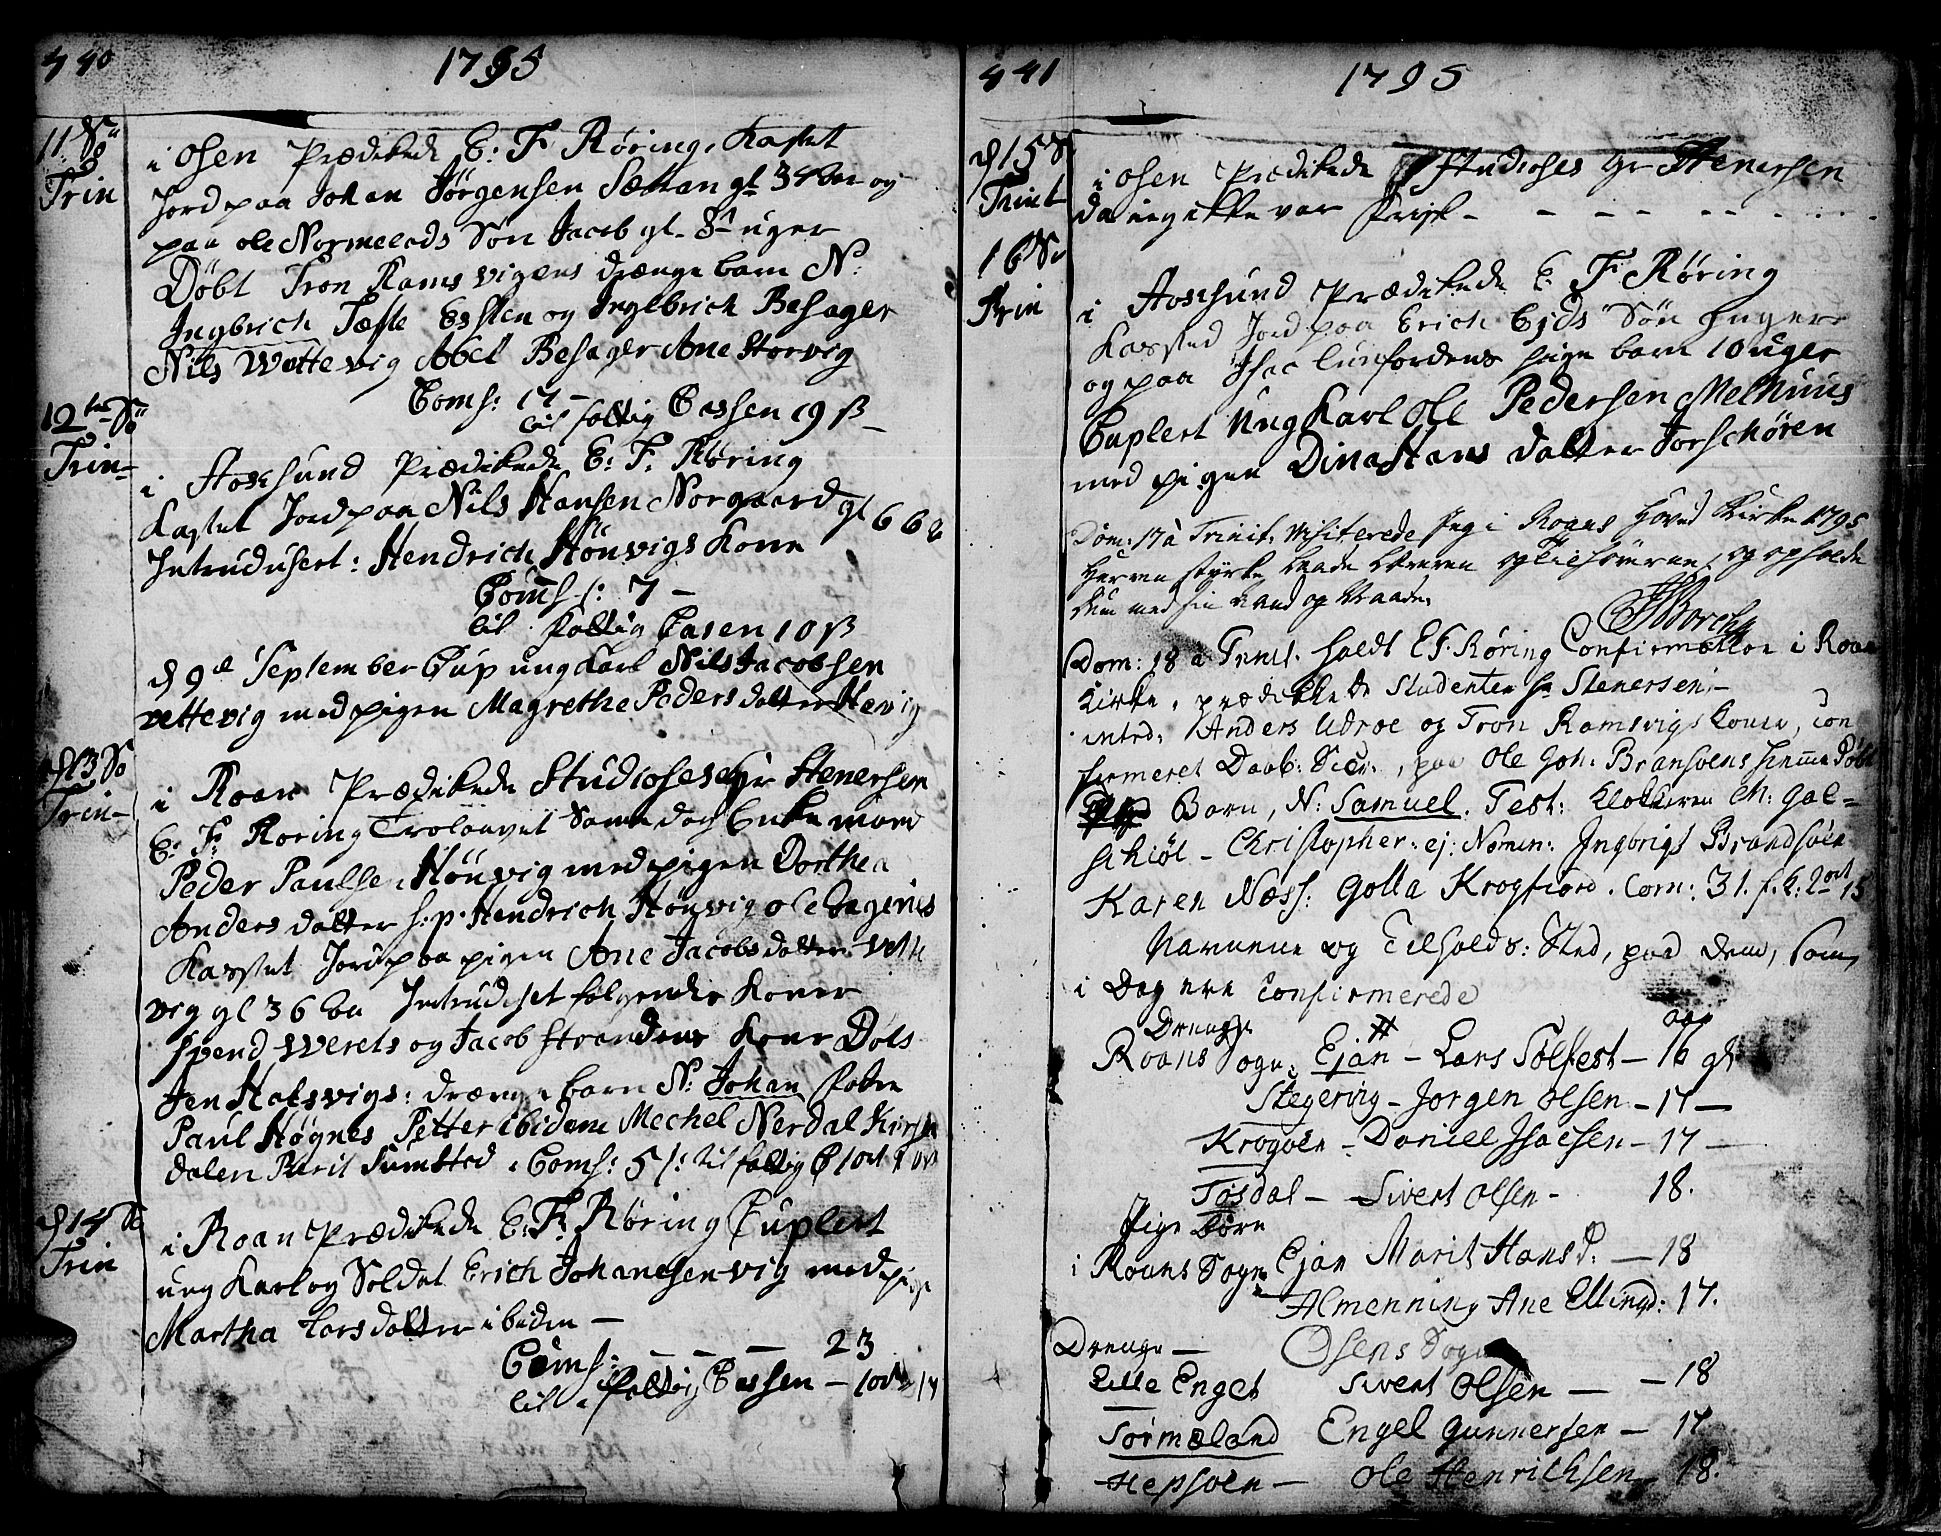 440
1795
11. Sø
Trin
i Osen Prædikede E: F: Røring. Kastet
Jord paa Johan Jørgensen Sætran gl. 34 aar og
paa Ole Normelads Søn Jacob gl. 8 uger
Døbt Tron Ramsvigens drænge barn N:
Ingbrich Tæste Essten og Ingebrich Besager
Nils Wettevig Abel Besager Ane Storvig
Coms: 17 -
til fattig Cassen 19 ß
12te Sø
Trin-
i Hosesund Prædikede E: F: Røring
Kastet Jord paa Nils Hansen Norgaard gl 66
Intrudusert: Hendrich Hønvigs Kone
Coms: 7 -
til fattig Casen 10 ß
d 9de September Cup ung Karl Nils Jacobsen
vettevig med pigen Magrethe Peders datter Hevig
d 13 So
Trin-
i Roan Prædikede Studioses Hr Stenersen
E: F: Roring Trolovet Samme dag Enke mand
Peder Paulsen Hønvig med pigen Dorthea
Anders datter f: p: Hendrich Hønvig ole
Kasstet Jord paa pigen Ane Jacobs datter Vette
vig gl 36 Intrudiset følgende Koner
Svend Werets og Jacob Strandens Koner Døbt
Jen Hatsvigs: drænge barn N: Johan fadre
Paul Høgnes Petter ibidem Mechel Nerdal Kirsti
dalen Marit Sumsted. Coms: 51: til fattig C 1 ort
d 14 So
Trin
i Roan Prædikede E: F: Røring Cuplert
ung Karl og Soldat Erich Johanesen vig med pige
Martha Lars datter ibiden -
Coms: - - - 23
til fattig Cassen - 1 ort 14
441
1795
d 15 S
Trint
i Osen Prædikede Studioses Hr Stenersen
da ieg ikke var frisk - - - - - -
16 So
Trin
i Hosesund Prædikede E. F Røring
Kassted Jord paa Erich Eids Søn uger
og paa Isac lunfordens pige barn 10 uger
Cuplert Ung Karl Ole Pedersen Melhuus
med pigen Dina Hans datter Torschøren
Dom: 17 à Trinit. visiterede Jeg i Roans Hoved Kirke 1795
Herren styrke baade Læreren og Tilhørerne, og opholde
dem med sin aand og Naade.
Borch
Dom: 18 a Trinit. holdt E F. Røring Confirmation i Roan
Kirke, prædikede Studenten Hr Stenersen -
intrd. Anders Udroe og Tron Ramsvigs Koner, con
firmeret Daab: , paa Ole Joh: Bransøens hiemme døbt
Barn, N: Samuel. Test: Klokkeren Ch: Gal=
schiøt - Christopher: ej: Nomin: Ingbrigt Brandsøen
Karen Næss: Golla Krogfiord. Com: 31. f. C: 2 ort 15
Navnene og Tilholds: Sted, paa dem, som
i Dag ere Confirmerede
Drenge
Roans Sogn. Ejan - Lars Solfest - 16 gl
aar
Stegering - Jorgen Olsen - 17 -
Krogøen - Daniel Isacsen - 17 -
Tøsdal - Sivert Olsen - 18.
Pige Børn
i Roans Sogn Ejan Marit Hans D: - 18
Almenning Ane Ellingd: 17.
Drenge - Osens Sogn
Lille Enget Sivert Olsen - - 18
Sørmeland Engel Gunnersen - 17
Hepsøen - Ole Henrichsen 18.